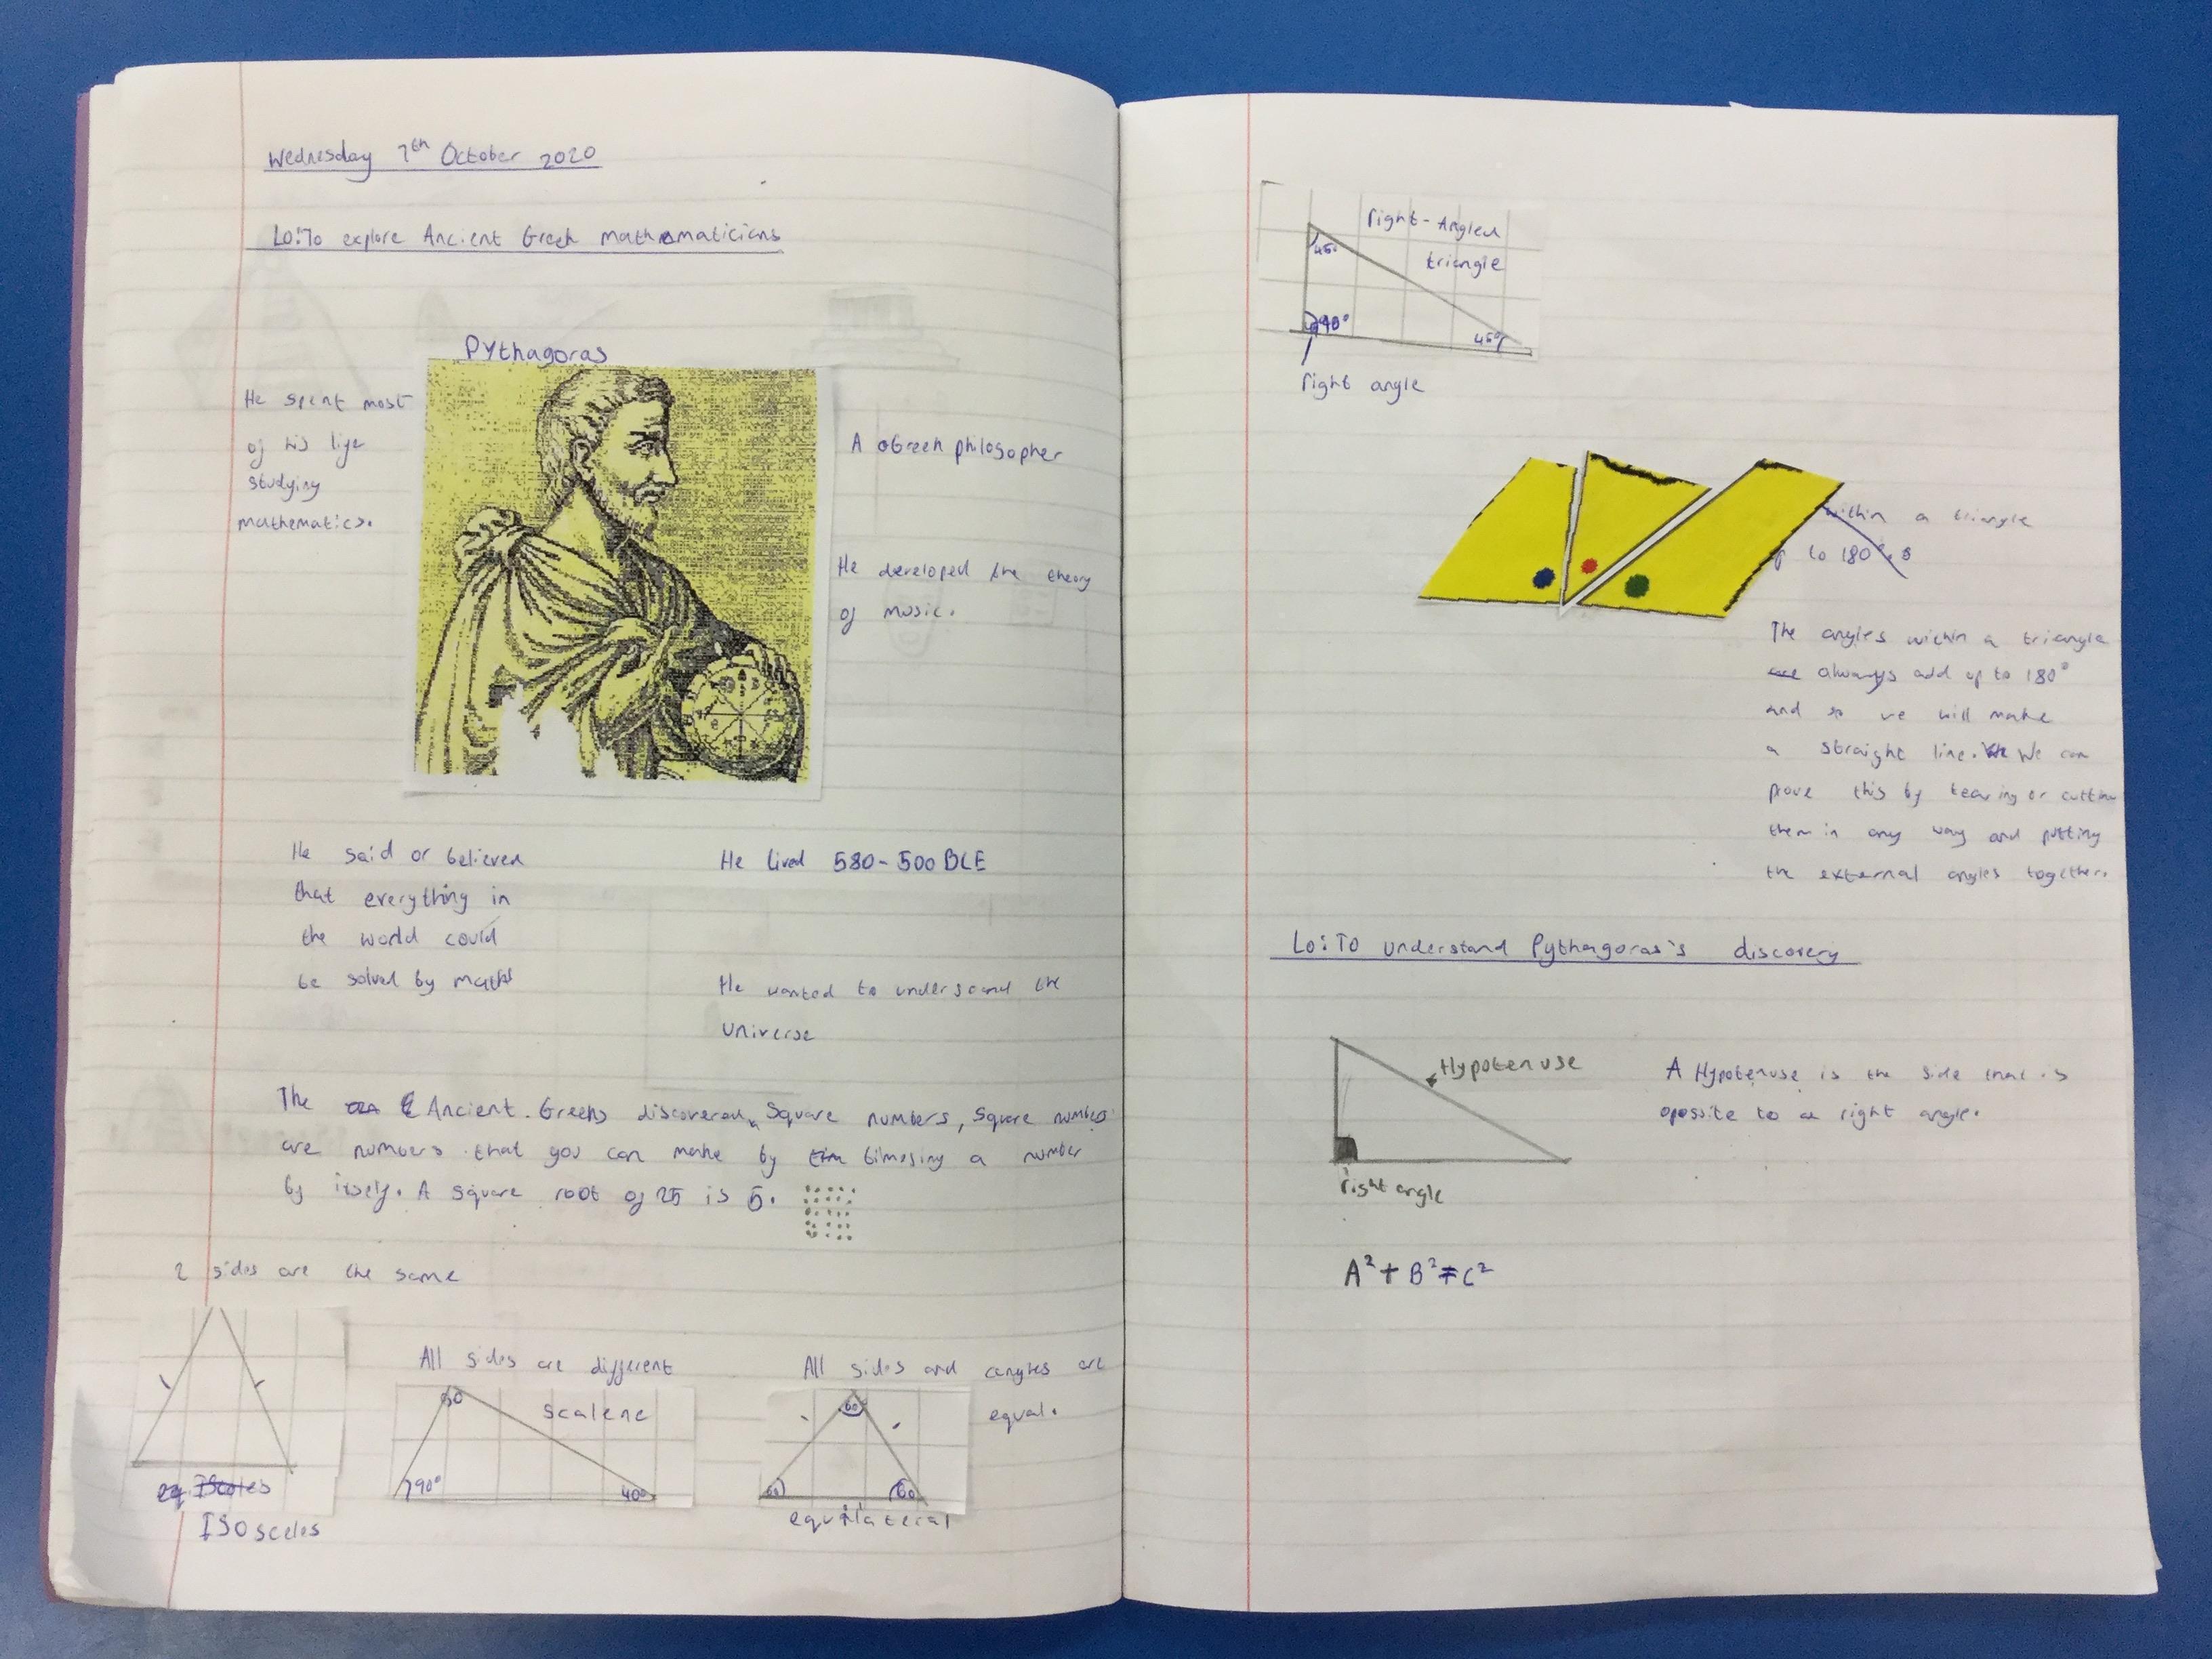 Wednesday 7th October 2020
Lo: To explore Ancient Greek mathematicians
Pythagoras
He spent most
of his life
studying
mathematics.
A Greek philosopher
He developed the theory
of music.
He said or believed
that everything in
the world could
be solved by maths
He lived 580-500 BCE
He wanted to understand the
universe
The Ancient Greeks discovered square numbers, square numbers
are numbers that you can make by timesing a number
by itself. A square root of 25 is 5.
2 sides are the same
Isoceles
All sides are different
scalene
90°
40°
All sides and angles are
equal.
60
60
60
equilateral
right-Angled
triangle
45°
90°
45°
right angle
within a triangle
to 180°
The angles within a triangle
are always add up to 180°
and so we will make
a straight line. We can
prove this by tearing or cutting
them in any way and putting
the external angles together.
Lo: To understand Pythagoras's discovery
Hypotenuse
right angle
A Hypotenuse is the side that is
oposite to a right angle.
A² + B² = C²